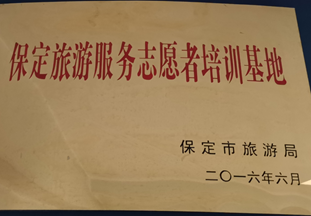 保定旅游服务志愿者培训基地
保定市旅游局
二〇一六年六月